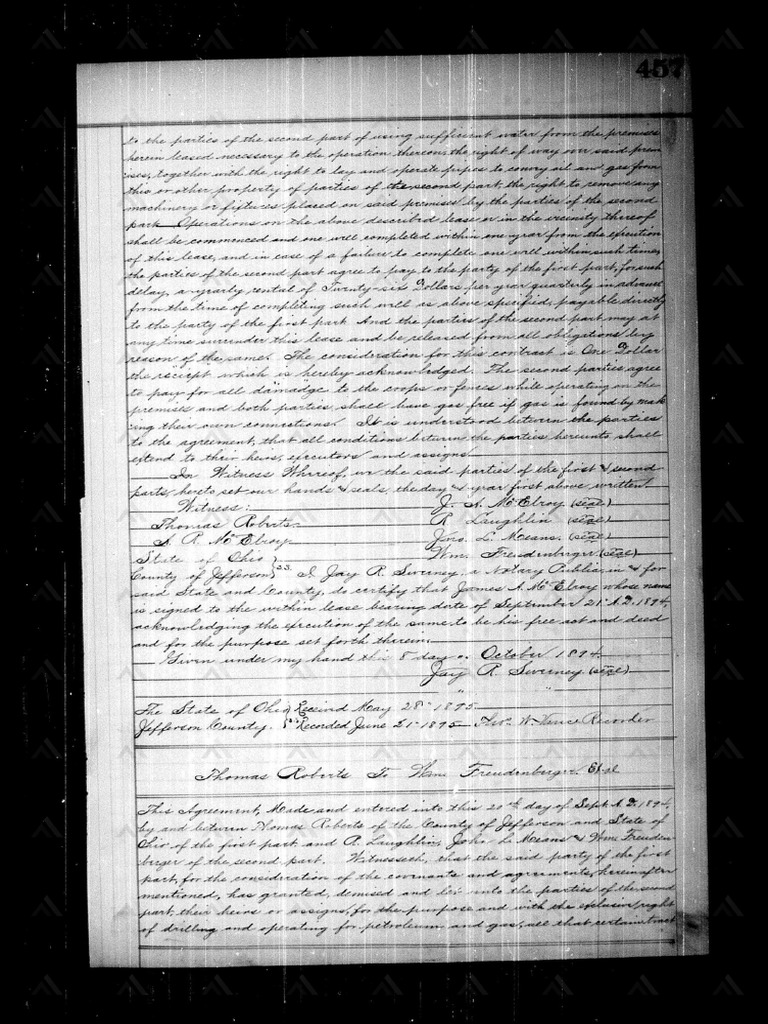 457
to the parties of the second part of using sufficient water from the premises
herein leased necessary to the operation thereon, the right of way over said prem
ises, together with the right to lay and operate pipes to convey oil and gas from
this or other property of parties of the second part, the right to remove any
machinery or fixtures placed on said premises by the parties of the second
part. Operations on the above described lease or in the vicinity thereof
shall be commenced and one well completed within one year from the execution
of this lease, and in case of a failure to complete one well within such time,
the parties of the second part agree to pay to the party of the first part, for such
delay, a yearly rental of Twenty-six Dollars per year quarterly in advance
from the time of completing such well as above specified, payable directly
to the party of the first part. And the parties of the second part may at
any time surrender this lease and be released from all obligations by
reason of the same. The consideration for this contract is One Dollar
the receipt which is hereby acknowledged. The second parties agree
to pay for all damadge to the crops or fences while operating on the
premises and both parties shall have gas free if gas is found by mak
ing their own connections. It is understood between the parties
to the agreement, that all conditions between the parties hereunto, shall
extend to their heirs, executors and assigns.
In Witness Whereof, we the said parties of the first & second
parts, hereto set our hands & seals, the day & year first above written.
Witness: J. A. McElroy (seal)
Thomas Roberts R Laughlin (seal)
S. R. McElroy Jno. L. Means. (seal)
State of Ohio } Wm. Freudenberger (seal)
County of Jefferson } S.S. I, Jay R. Sweeney, a Notary Public in & for
said State and County, do certify that James A. McElroy whose name
is signed to the within lease bearing date of September 21st A.D. 1894,
acknowledging the execution of the same to be his free act and deed
and for the purpose set forth therein.
Given under my hand this 8 day o. October 1894.
Jay R. Sweeney (seal)
" "
The State of Ohio } Received May 28th 1895
Jefferson County. } ss. Recorded June 21st 1895 W. Recorder
Thomas Roberts To Wm Freudenberger. Et-al
This Agreement, Made and entered into this 20th day of Sept. A.D. 1894,
by and between Thomas Roberts of the County of Jefferson and State of
Ohio of the first part, and R. Laughlin, John L. Means & Wm. Freuden-
berger of the second part. Witnesseth, that the said party of the first
part, for the consideration of the covenants and agreements, hereinafter
mentioned, has granted, demised and let unto the parties of the second
part, their heirs or assigns, for the purpose and with the exclusive right
of drilling and operating for petroleum and gas, all that certain tract